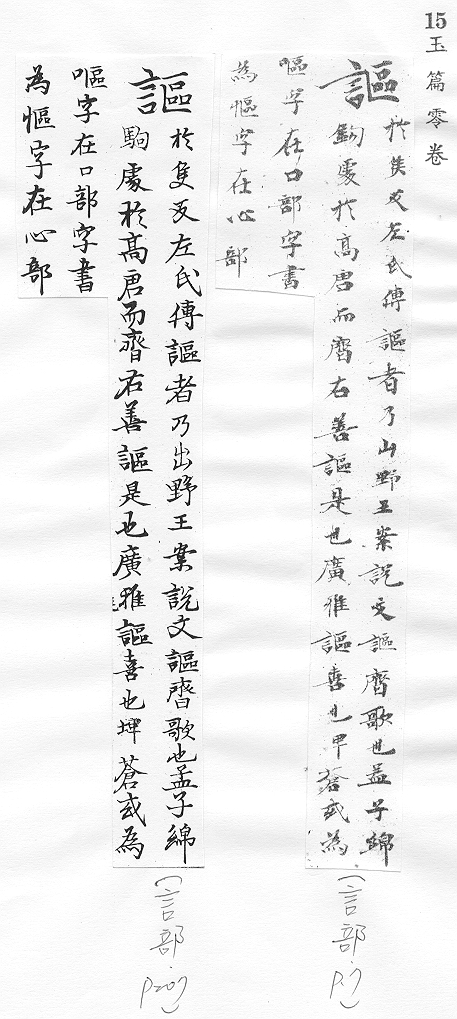 15
玉篇零卷
謳
於侯反左氏傳謳者乃出野王案說文謳齊歌也孟子綿
駒處於高唐而齊右善謳是也廣雅謳喜也埤蒼或為
嘔字在口部字書
為慪字在心部
(言部.p.7)
謳
於隻反左氏傳謳者乃出野王案說文謳齊歌也孟子綿
駒處於高唐而齊右善謳是也廣雅謳喜也埤蒼或為
嘔字在口部字書
為慪字在心部
(言部.p207)